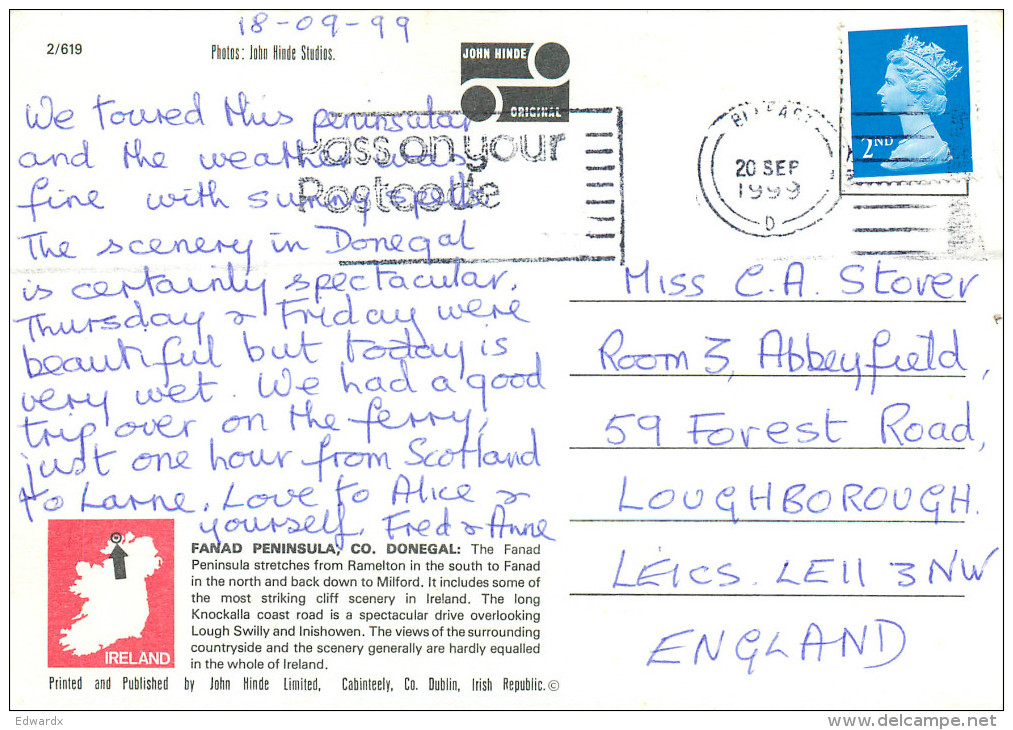 18-09-99
2/619
Photos: John Hinde Studios.
JOHN HINDE
ORIGINAL
We toured this peninsular
and the weather was
fine with sunny spells.
The scenery in Donegal
is certainly spectacular.
Thursday & Friday were
beautiful but today is
very wet. We had a good
trip over on the ferry,
just one hour from Scotland
to Larne. Love to Alice &
yourself. Fred & Anne
Pass on your
Postcode
BELFAST
20 SEP
1999
D
2ND
Miss C.A. Stover
Room 3, Abbeyfield,
59 Forest Road,
LOUGHBOROUGH.
LEICS. LE11 3NW
ENGLAND
IRELAND
FANAD PENINSULA, CO. DONEGAL: The Fanad
Peninsula stretches from Ramelton in the south to Fanad
in the north and back down to Milford. It includes some of
the most striking cliff scenery in Ireland. The long
Knockalla coast road is a spectacular drive overlooking
Lough Swilly and Inishowen. The views of the surrounding
countryside and the scenery generally are hardly equalled
in the whole of Ireland.
Printed and Published by John Hinde Limited, Cabinteely, Co. Dublin, Irish Republic.©
Edwardx
www.delcampe.net